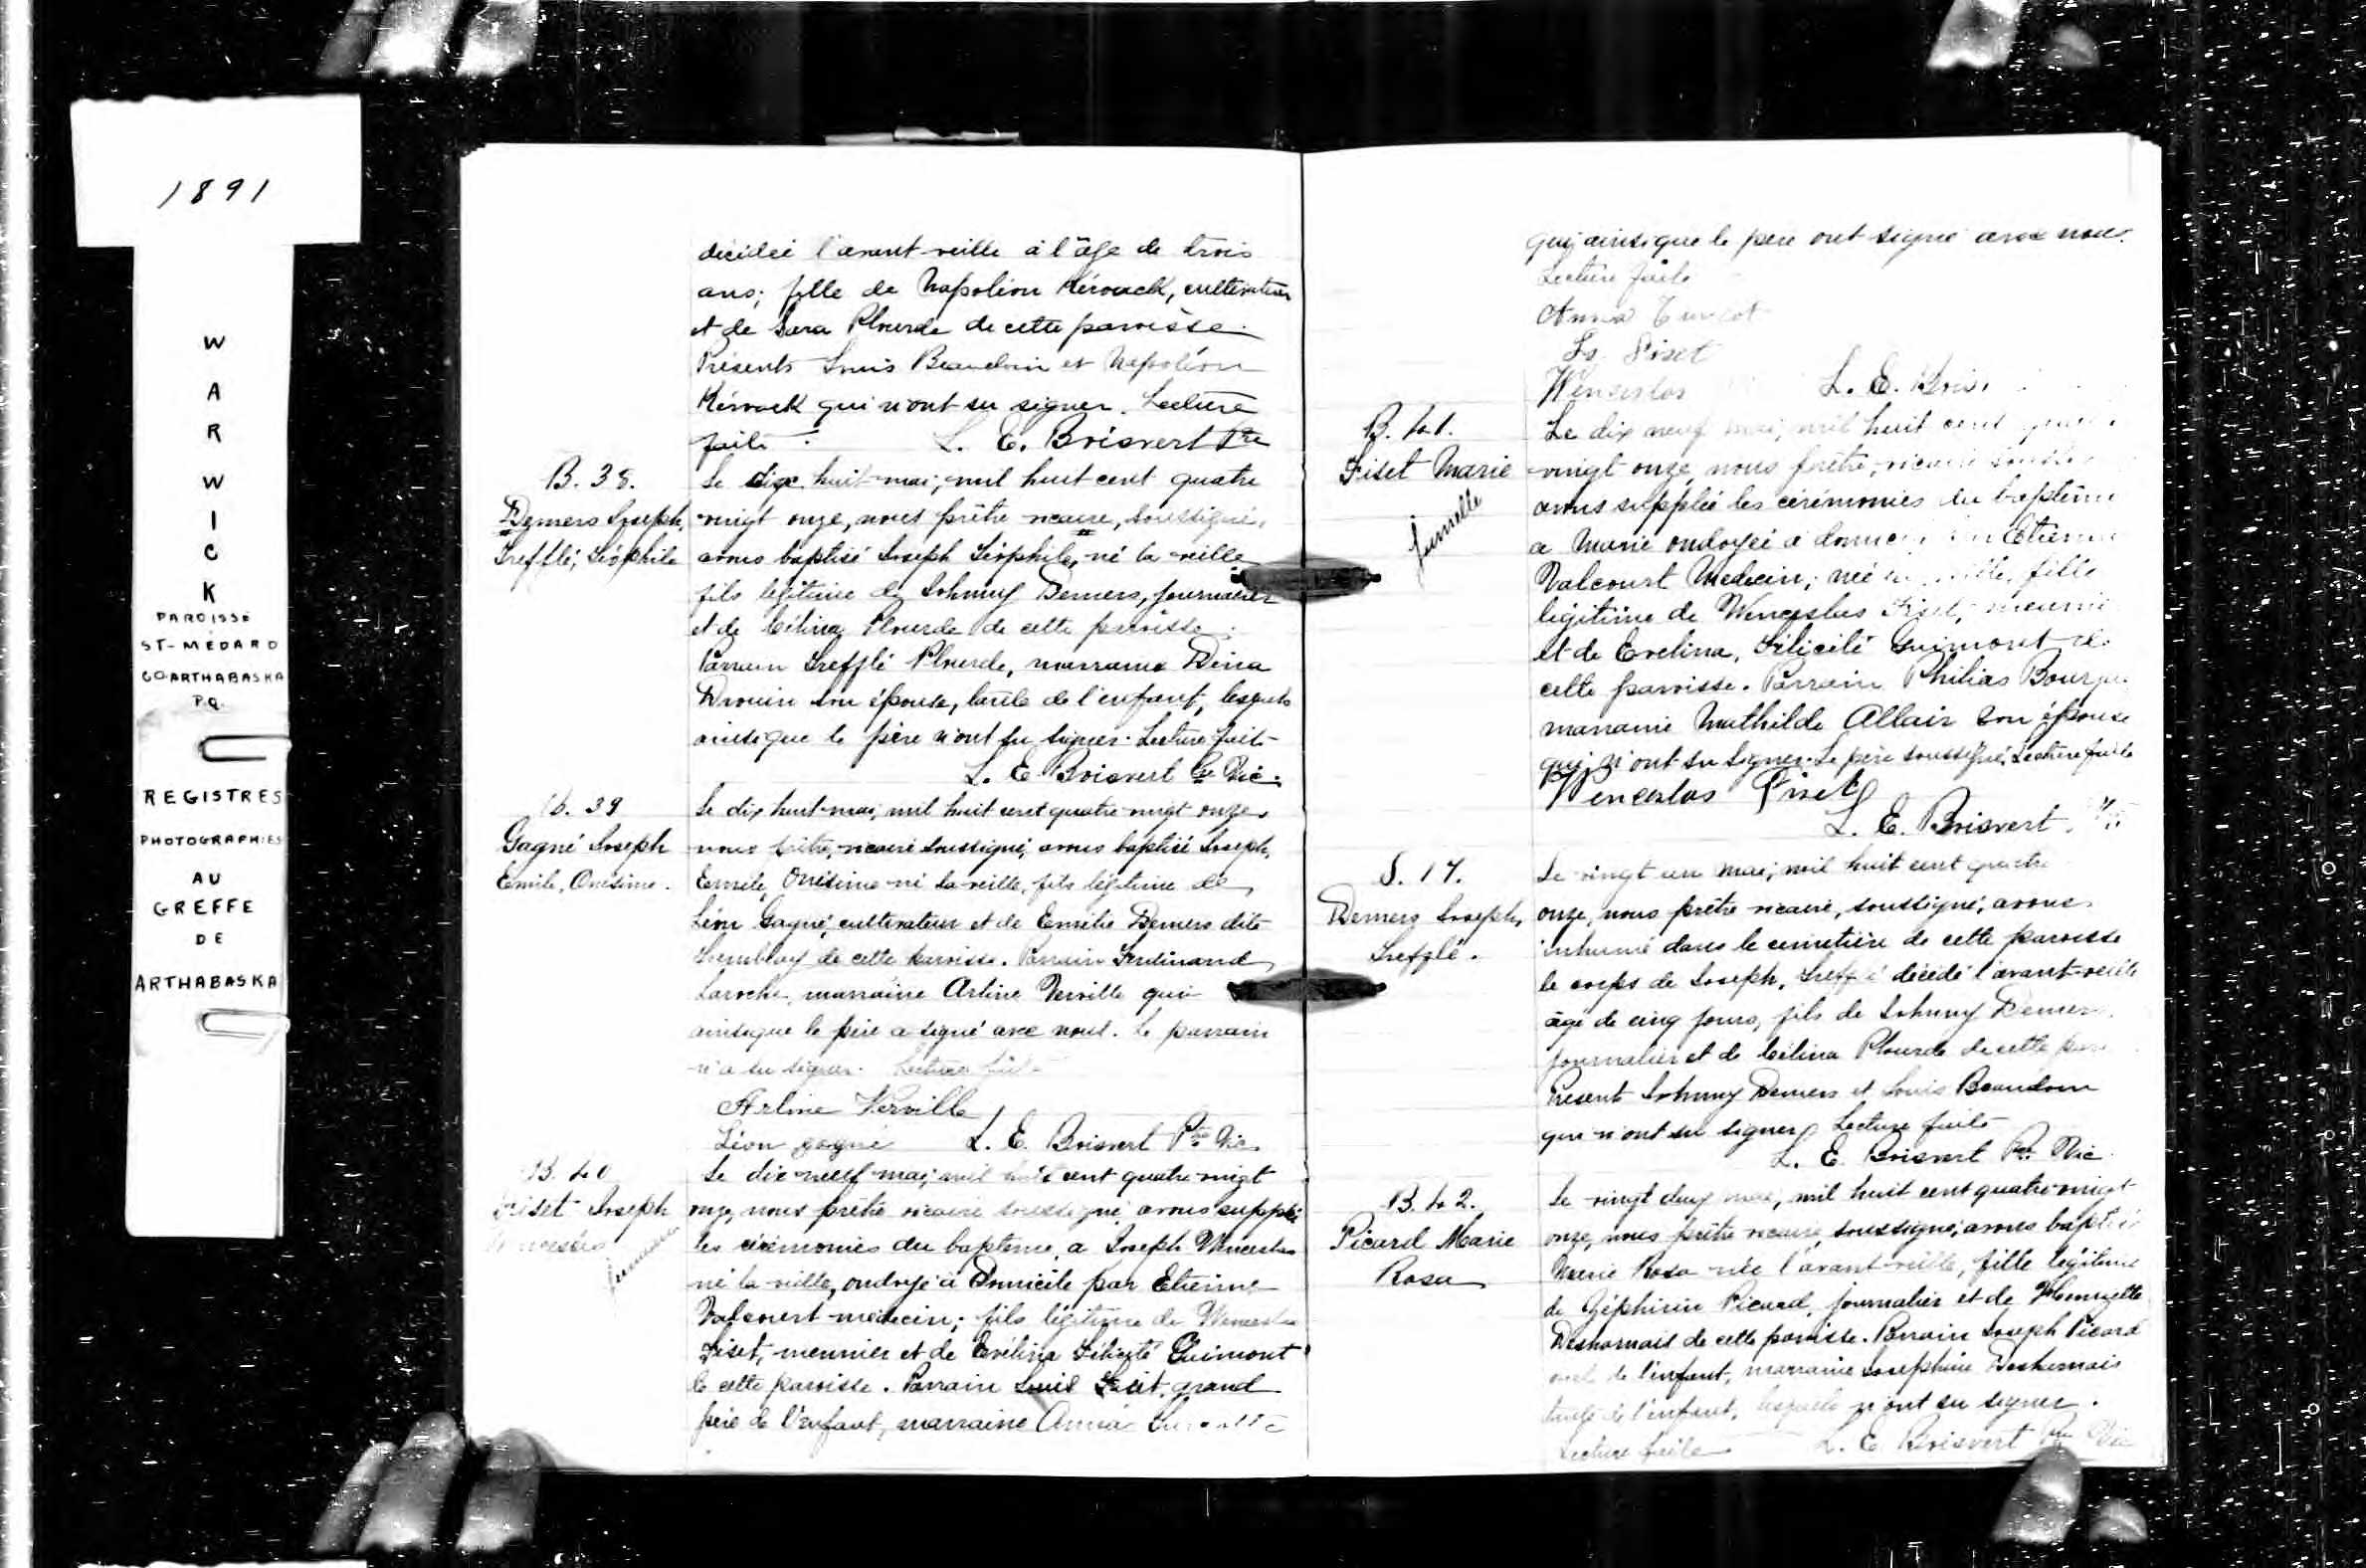 1891
W
A
R
W
I
C
K
PAROISSE
ST-MÉDARD
CO ARTHABASKA
P.Q.
REGISTRES
PHOTOGRAPHIES
AU
GREFFE
DE
ARTHABASKA
décédée l'avant-veille à l'âge de trois
ans; fille de Napoléon Kérouack, cultivateur
et de Sara Plourde de cette paroisse.
Présents Louis Beaudoin et Napoléon
Kérouack qui n'ont su signer. Lecture
faite. L. E. Boisvert Ptre
B. 38.
Demers Joseph,
Trefflé, Léophile
Le dix huit mai, mil huit cent quatre
vingt onze, nous prêtre vicaire, soussigné,
avons baptisé Joseph Léophile, né la veille
fils légitime de Johnny Demers, journalier
et de Célina Plourde de cette paroisse.
Parrain Trefflé Plourde, marraine Dina
Drouin son épouse, tante de l'enfant, lesquels
ainsi que le père n'ont su signer. Lecture faite
L. E. Boisvert Ptre Vic.
B. 39
Gagné Joseph
Emile, Onésime.
Le dix huit mai, mil huit cent quatre vingt onze
nous prêtre, vicaire soussigné, avons baptisé Joseph,
Emile, Onésime né la veille, fils légitime de
Léon Gagné, cultivateur et de Emélie Demers dite
Tremblay de cette paroisse. Parrain Ferdinand
Laroche, marraine Arline Verville qui
ainsi que le père a signé avec nous. Le parrain
n'a su signer. Lecture faite
Arline Verville
Léon gagné L. E. Boisvert Ptre Vic
B. 40
Fiset Joseph
jumeau
Le dix neuf mai, mil huit cent quatre vingt
onze, nous prêtre vicaire soussigné avons suppléé
les cérémonies du baptême, a Joseph Wenceslas
né la veille, ondoyé à Domicile par Etienne
Valcourt médecin; fils légitime de Wenceslas
Fiset, meunier et de Evélina Félicité Guimont
de cette paroisse. Parrain Louis Fiset, grand
père de l'enfant, marraine Anna
qui ainsi que le père ont signé avec nous.
Lecture faite
Anna Turcot
Ls. Fiset
Wenceslas L. E. Bois
B. 41.
Fiset Marie
jumelle
Le dix neuf mai, mil huit cent
vingt onze, nous prêtre, vicaire
avons suppléé les cérémonies du baptême
a Marie ondoyée a Etienne
Valcourt Medecin; née fille
légitime de Wenceslas Fiset, meunier
et de Evelina, Félicité Guimont de
cette paroisse. Parrain Philias
marraine Mathilde Allair son épouse
qui n'ont su signer. Le père soussigné. Lecture faite
Wenceslas Fiset
L. E. Boisvert
S. 17.
Demers Joseph,
Trefflé.
Le vingt un mai, mil huit cent quatre
onze, nous prêtre vicaire, soussigné, avons
inhumé dans le cimetière de cette paroisse
le corps de Joseph, Trefflé décédé l'avant-veille
âgé de cinq jours, fils de Johnny Demers
journalier et de Célina Plourde de cette
Présent Johnny Demers et Louis Beaudoin
qui n'ont su signer, Lecture faite
L. E. Boisvert Ptre Vic
B. 42.
Picard Marie
Rosa
Le vingt deux mai, mil huit cent quatre vingt
onze, nous prêtre vicaire, soussigné, avons baptisé
Marie Rosa née l'avant-veille, fille légitime
de Zéphirin Picard, journalier et de Henriette
Desharnais de cette paroisse. Parrain Joseph Picard
oncle de l'enfant, marraine Joséphine Desharnais
tante de l'enfant, lesquels n'ont su signer.
Lecture faite L. E. Boisvert Ptre Vic